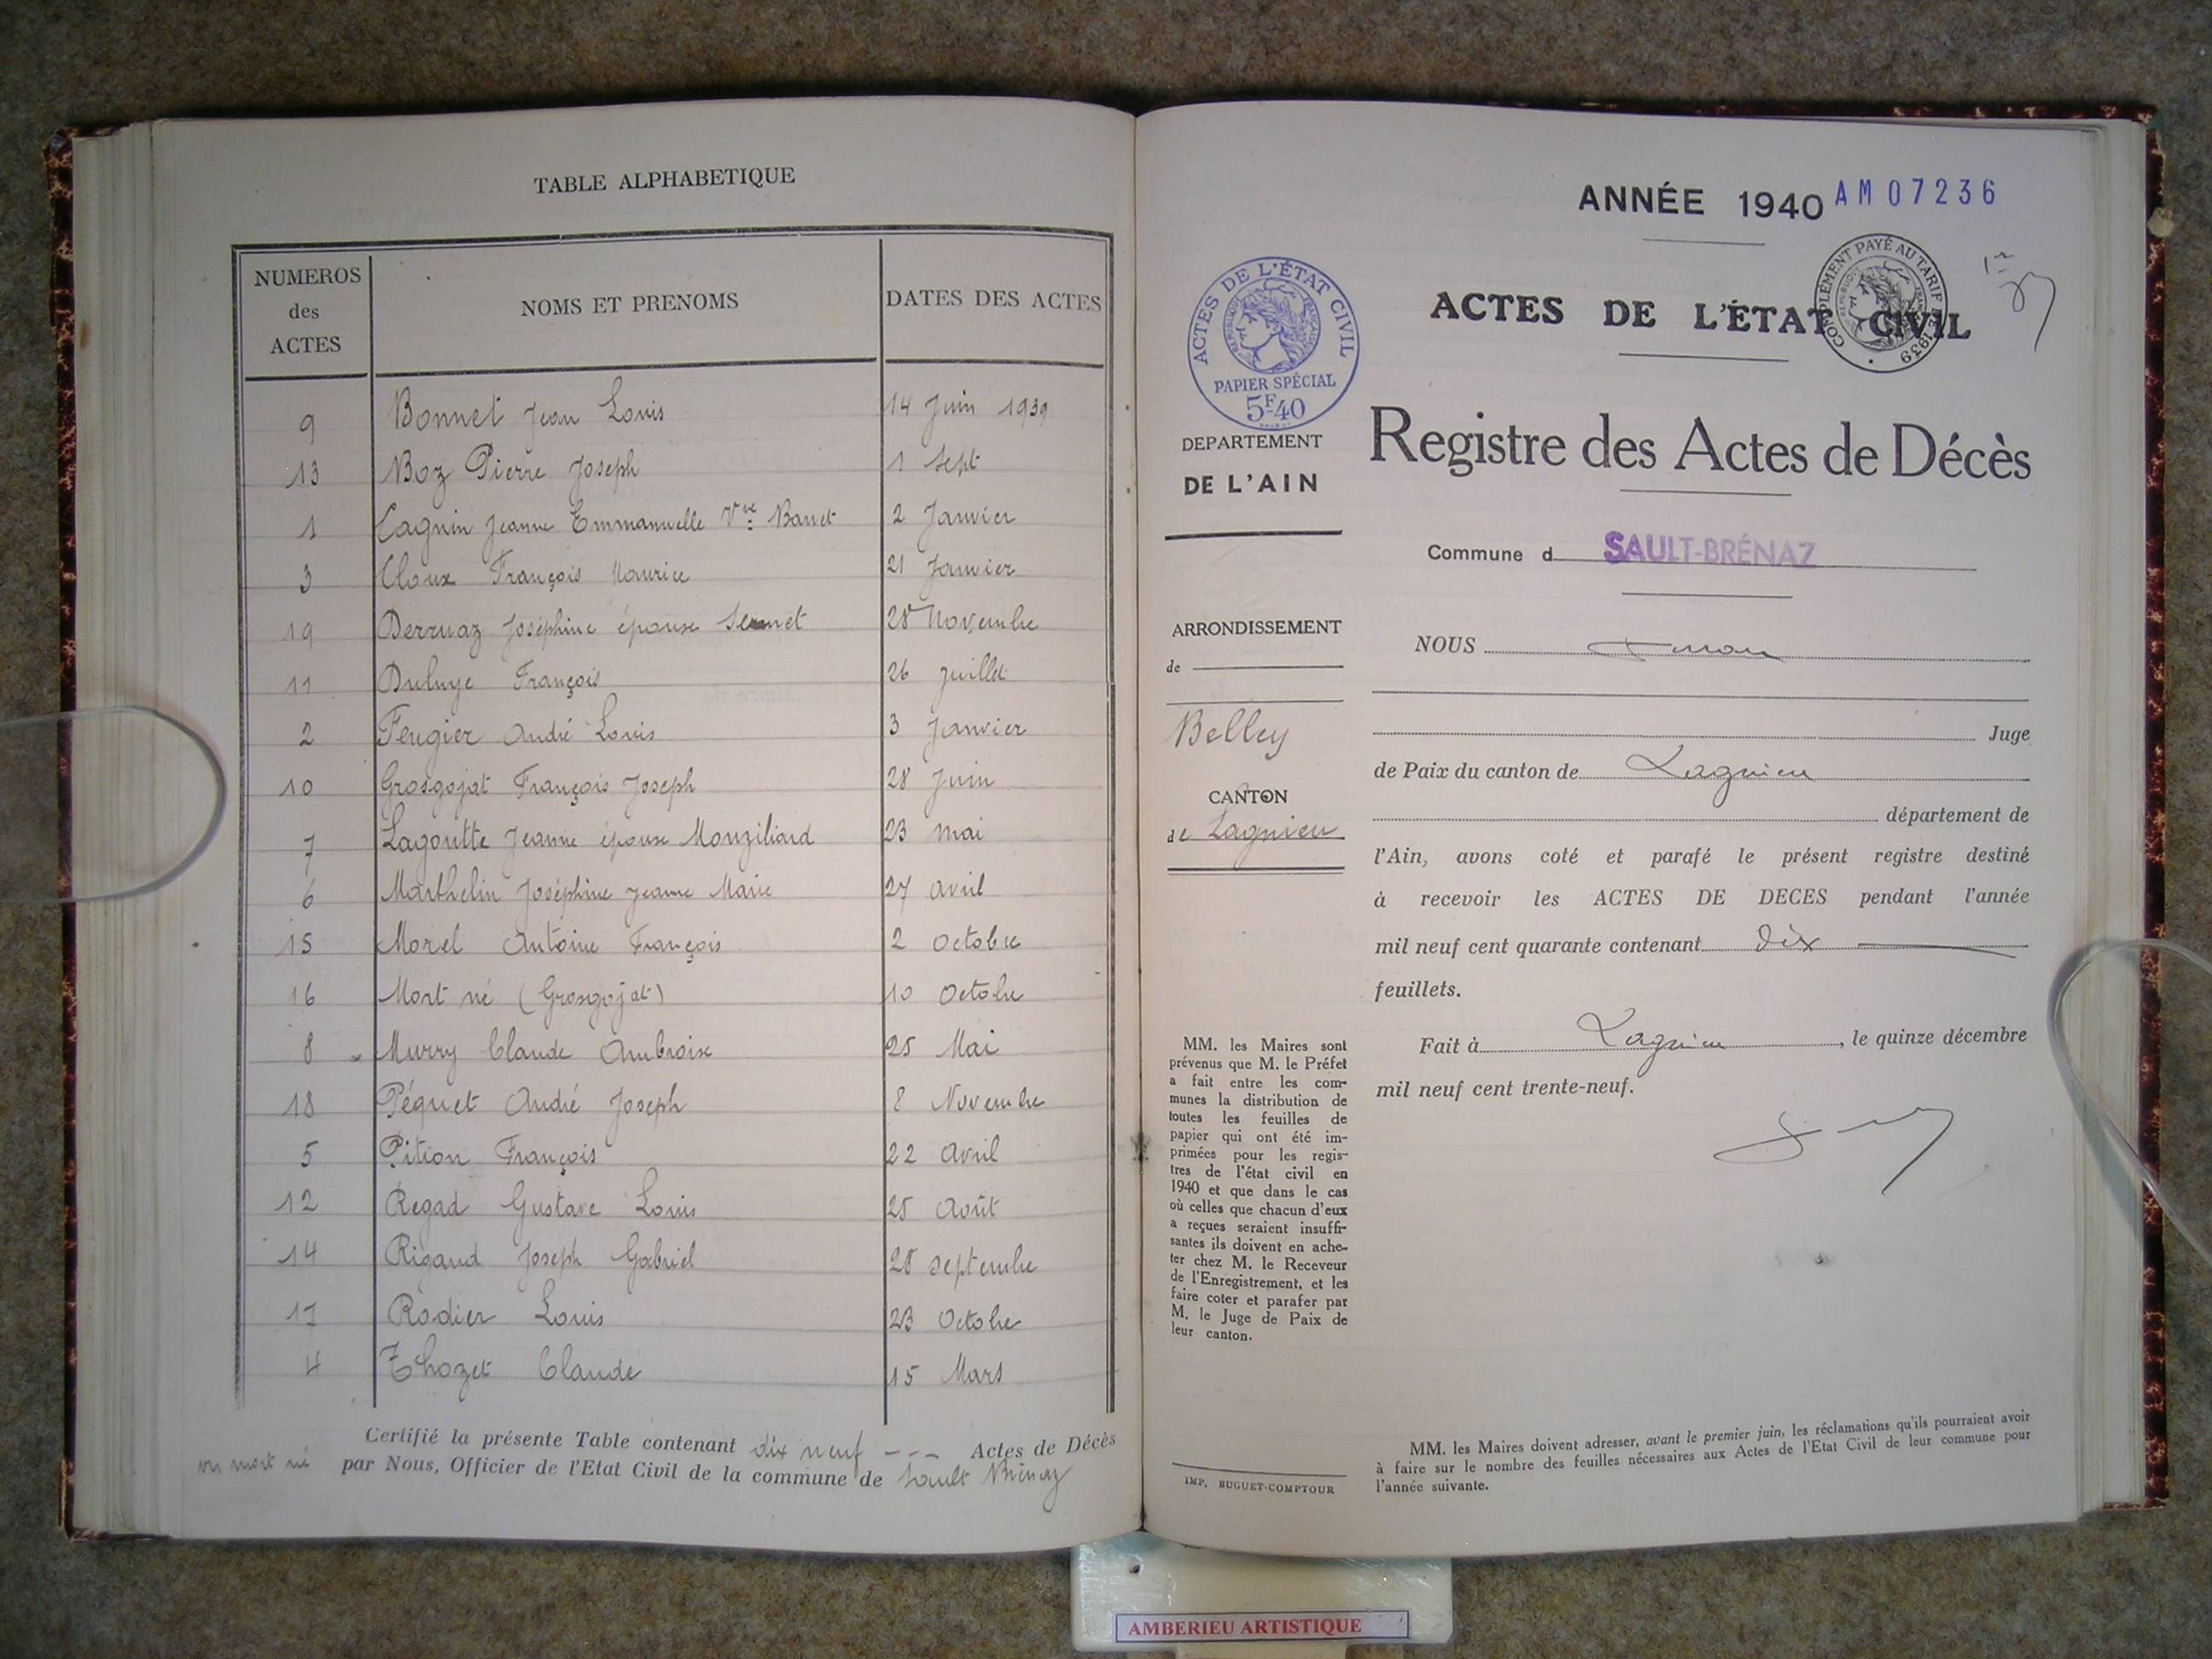 TABLE ALPHABETIQUE
NUMEROS des ACTES NOMS ET PRENOMS DATES DES ACTES
9 Bonnet Jean Louis 14 Juin 1939
13 Boz Pierre Joseph 1 Sept
1 Cagnin Jeanne Emmanuelle Vve 2 Janvier
3 Cloux François Maurice 21 Janvier
19 Derruaz Joséphine épouse 28 Novembre
11 François 26 Juillet
2 Feugier André Louis 3 Janvier
10 Grosgojat François Joseph 28 Juin
7 Lagoutte Jeanne épouse Monziliard 23 mai
6 Marthelin Joséphine Jeanne Marie 27 avril
15 Morel Antoine François 2 Octobre
16 Mort né (Grosgojat) 10 Octobre
8 Murry Claude Ambroise 25 Mai
18 Péquet André Joseph 8 Novembre
5 Pition François 22 Avril
12 Regad Gustave Louis 25 Août
14 Rigaud Joseph Gabriel 28 septembre
17 Rodier Louis 23 Octobre
4 Thozet Claude 15 Mars
Certifié la présente Table contenant dix neuf --- Actes de Décès
un mort né par Nous, Officier de l'Etat Civil de la commune de Sault Brénaz
ANNÉE 1940 AM07236
COMPLÉMENT PAYÉ AU TARIF 1939
ACTES DE L'ÉTAT CIVIL
ACTES DE L'ÉTAT CIVIL
RÉPUBLIQUE FRANÇAISE
PAPIER SPÉCIAL
5F40
DEPARTEMENT
DE L'AIN
ARRONDISSEMENT
de
Belley
CANTON
de Lagnieu
MM. les Maires sont
prévenus que M. le Préfet
a fait entre les com-
munes la distribution de
toutes les feuilles de
papier qui ont été im-
primées pour les regis-
tres de l'état civil en
1940 et que dans le cas
où celles que chacun d'eux
a reçues seraient insuffi-
santes ils doivent en ache-
ter chez M. le Receveur
de l'Enregistrement, et les
faire coter et parafer par
M. le Juge de Paix de
leur canton.
IMP. BUGUET-COMPTOUR
Registre des Actes de Décès
Commune d SAULT-BRÉNAZ
NOUS
Juge
de Paix du canton de Lagnieu
département de
l'Ain, avons coté et parafé le présent registre destiné
à recevoir les ACTES DE DECES pendant l'année
mil neuf cent quarante contenant dix
feuillets.
Fait à Lagnieu, le quinze décembre
mil neuf cent trente-neuf.
MM. les Maires doivent adresser, avant le premier juin, les réclamations qu'ils pourraient avoir
à faire sur le nombre des feuilles nécessaires aux Actes de l'Etat Civil de leur commune pour
l'année suivante.
AMBERIEU ARTISTIQUE